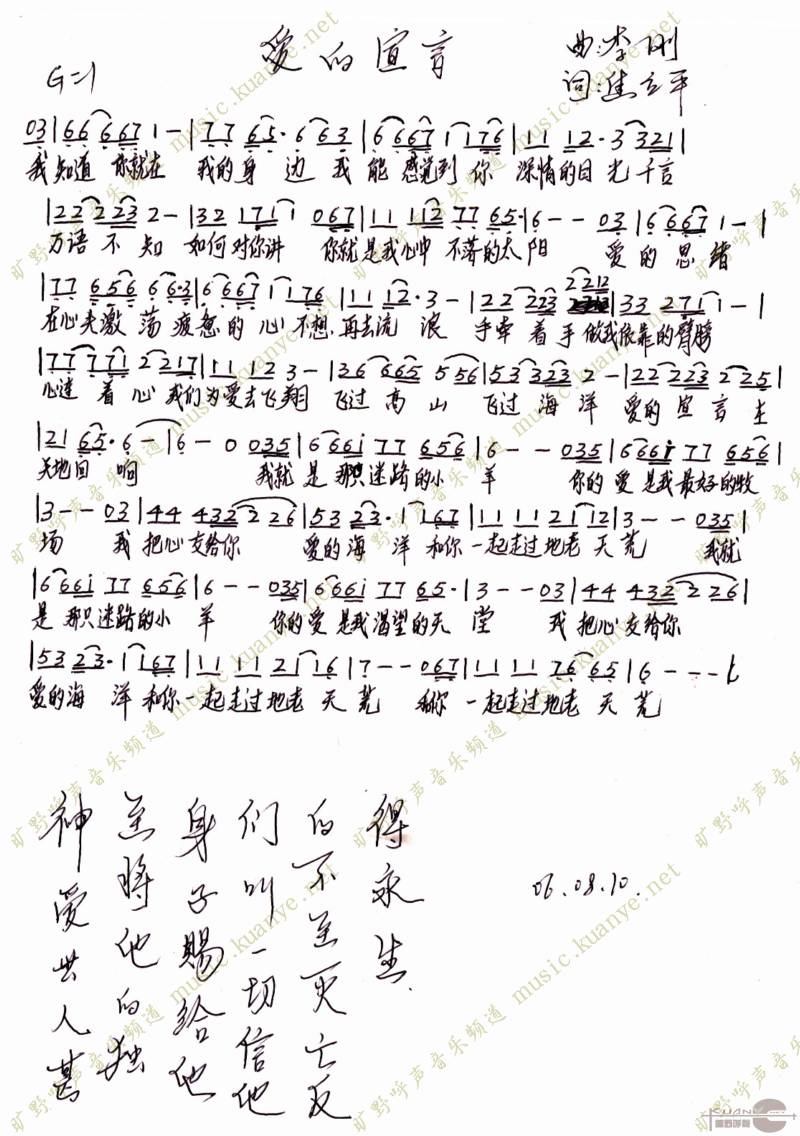 爱的宣言
曲:李刚
G=1
词:焦立平
03|66 667 1 -|77 65· 6 63|6667 1 176|11 12· 3 3321|
我知道 你就在 我的身边 我能感觉到你 深情的目光 千言
|22 223 2 -|32 171 1 067|11 112 77 65·|6 - - 03|6 667 1 -|
万语不知 如何对你讲 你就是我心中 不落的太阳 爱的思绪
2212
|77 656 6 663|6667 1 176|11 12· 3 -|22 223|33 271 1 -|
在心头激荡 疲惫的心不想 再去流浪 手牵着手 做我依靠的臂膀
|77 771 2 217|11 12 3 -|36 665 5 56|53 323 2 -|22 223 2 225|
心连着心 我们为爱去飞翔 飞过高山 飞过海洋 爱的宣言 在
|21 65· 6 -|6 - 0 035|6661 77 656|6 - - 035|6661 77 656|
天地回响 我就是那只迷路的小羊 你的爱是我最好的牧
|3 - - 03|44 432 2 26|53 23· 1 167|11 11 21 12|3 - - 035|
场 我把心交给你 爱的海洋 和你一起走过地老天荒 我就
|6661 77 656|6 - - 035|6661 77 65·|3 - - 03|44 432 2 26|
是那只迷路的小羊 你的爱是我渴望的天堂 我把心交给你
|53 23· 1 167|11 11 21 16|7 - - 067|11 11 76 65|6 - - -|
爱的海洋 和你一起走过地老天荒 和你一起走过地老天荒
神爱世人甚
至将他的独
身子賜给他
们叫一切信他
的不至灭亡反
得永生
06.08.10.
旷野呼声音乐频道 music.kuanye.net
旷野呼声音乐频道 music.kuanye.net
旷野呼声音乐频道 music.kuanye.net
旷野呼声音乐频道 music.kuanye.net
旷野呼声音乐频道 music.kuanye.net
旷野呼声音乐频道 music.kuanye.net